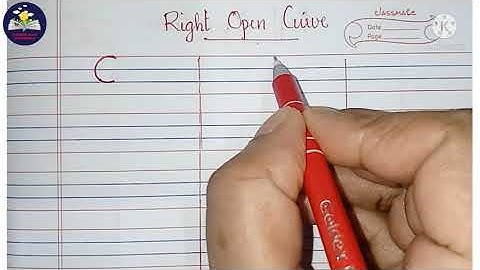 Right Open Curve
classmate
Date
Page
C
Goldex